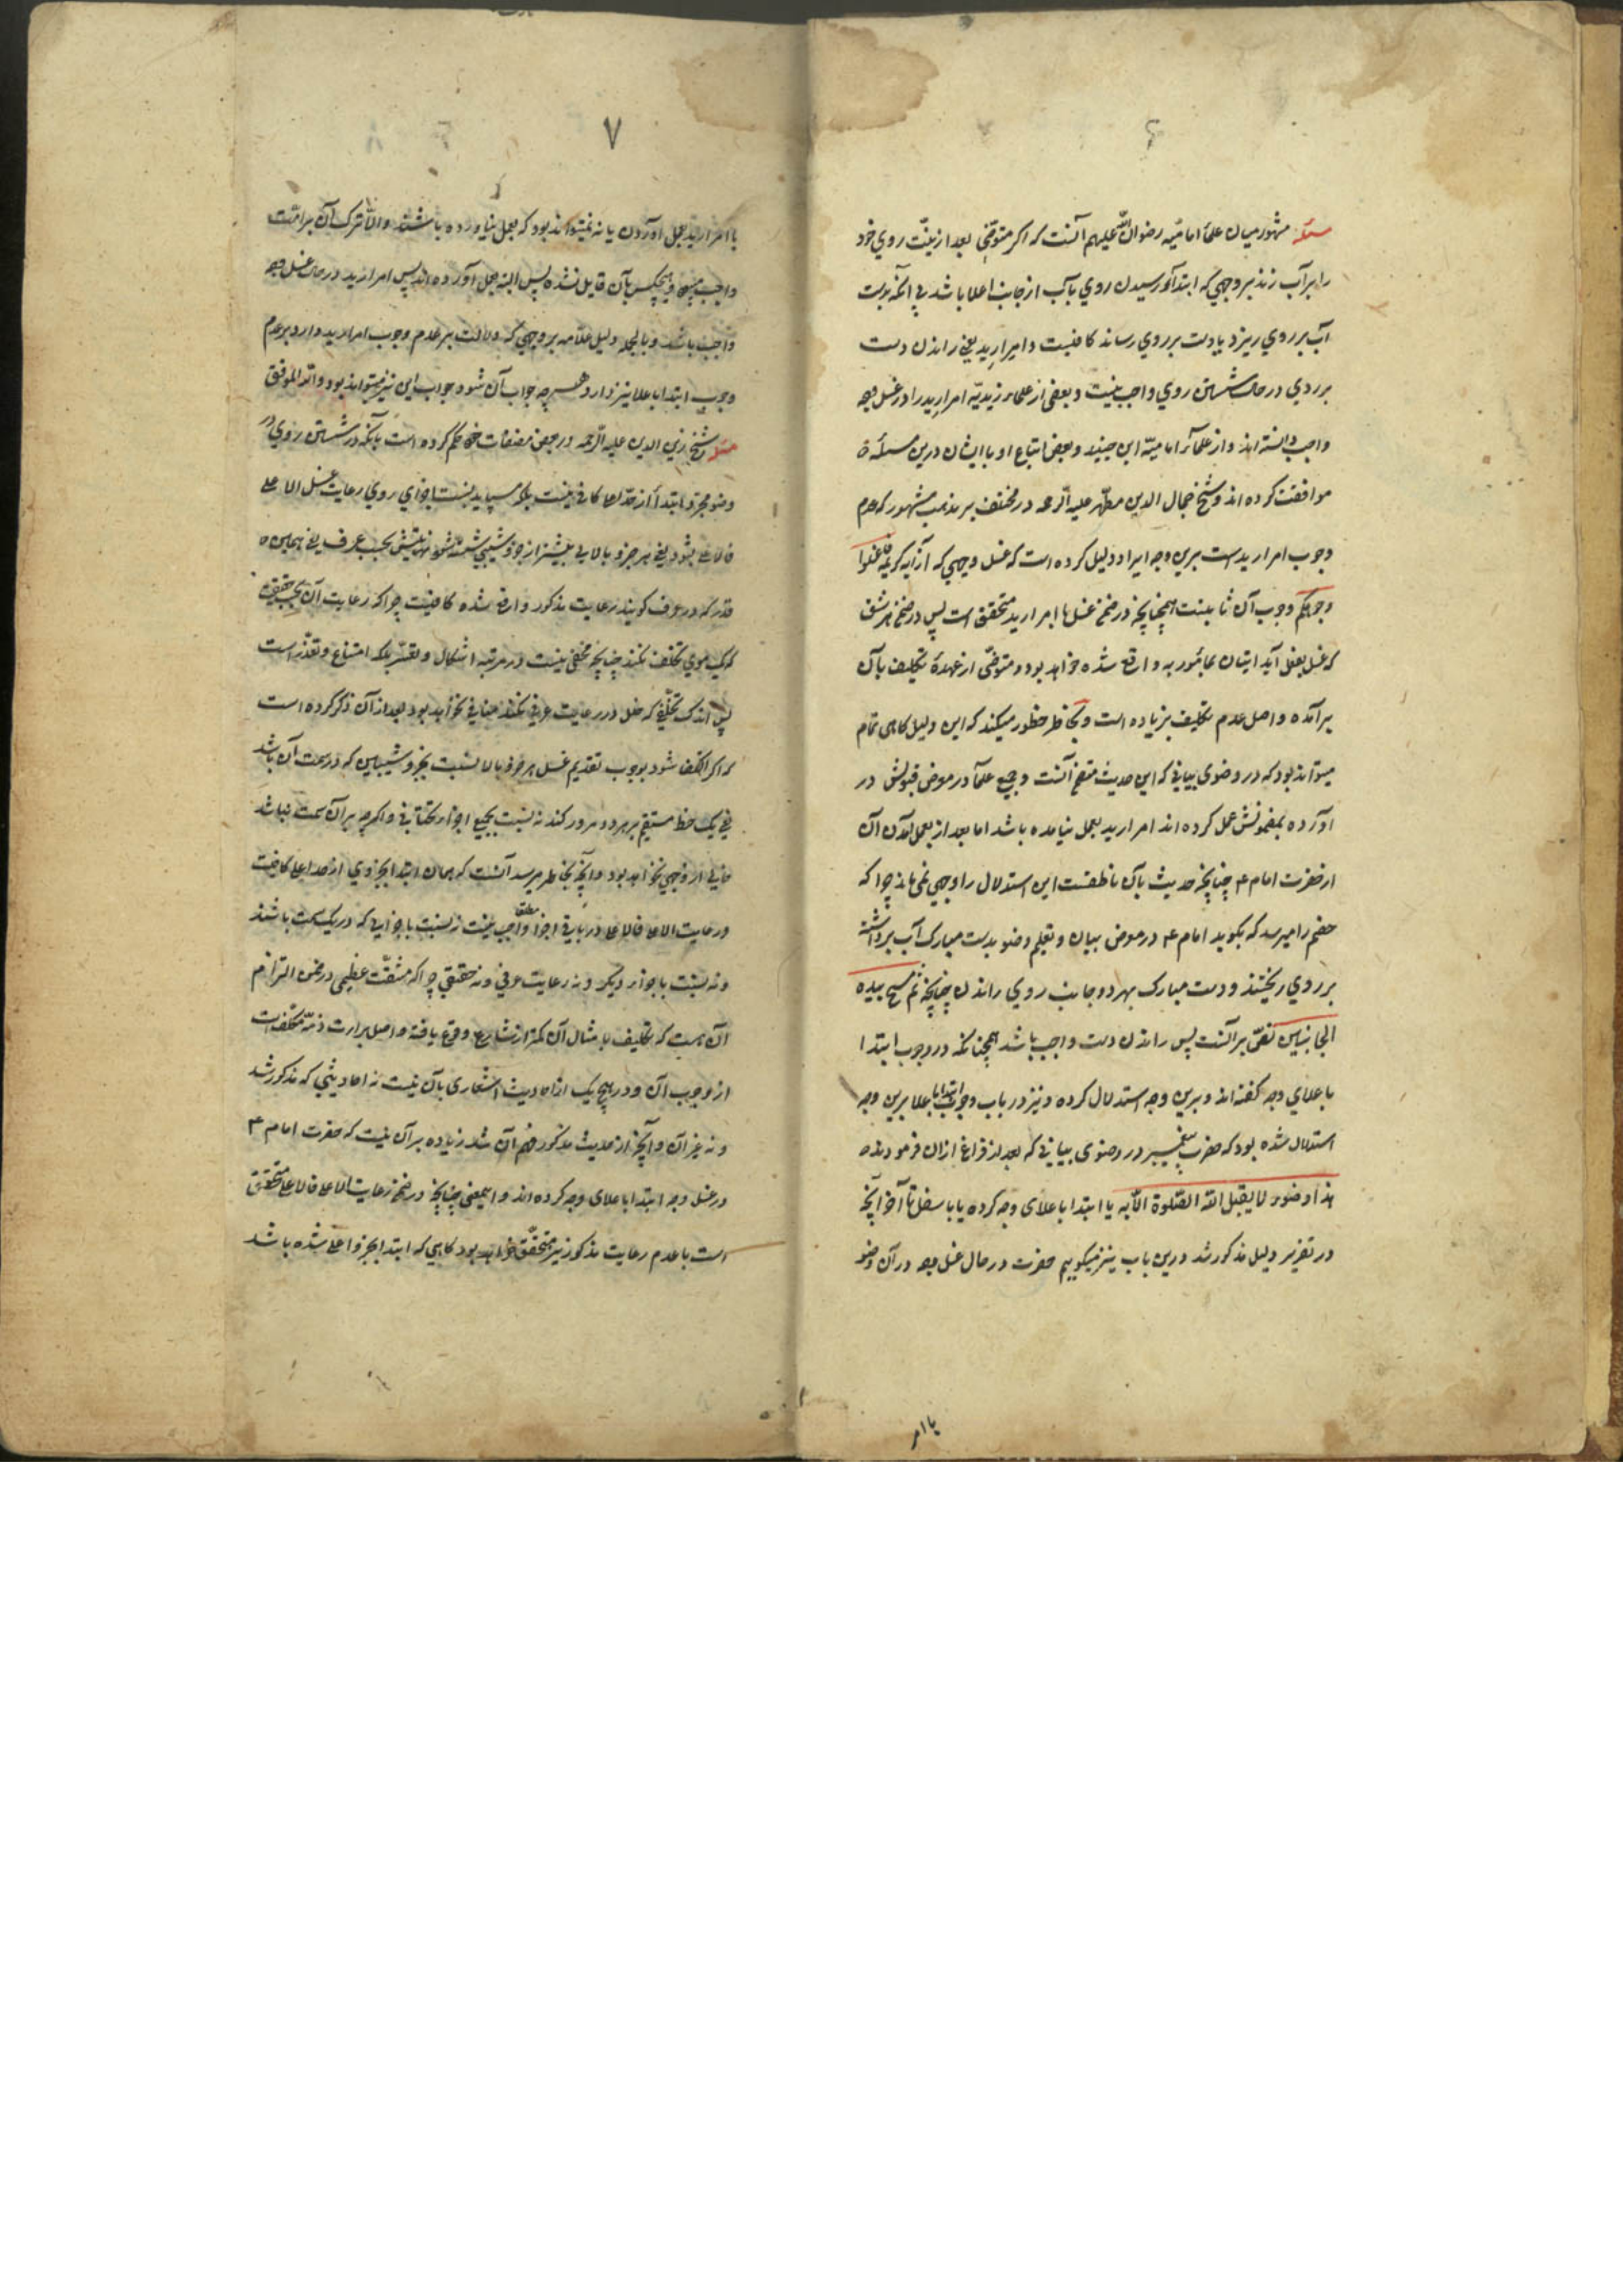 ۶
مسئله مشهور میان علماء امامیه رضوان الله علیهم آنست که اکر متوضّی بعد از نیّت روی خود
را بر آب زند بر وجهی که ابتداء رسیدن روی بآب از جانب اعلا باشد بی آنکه بدست
آب بر روی ریزد یا دست بر روی رساند کافیست و امرار ید یعنی راندن دست
بر روی در حالت شستن روی واجب نیست و بعضی از علماء زیدیّه امرار ید را در غسل وجه
واجب دانسته اند و از علماء امامیّه ابن جنید و بعضی اتباع او با ایشان درین مسئله
موافقت کرده اند و شیخ جمال الدین مطهّر علیه الرحمه در مختلف بر مذهب مشهور که عدم
وجوب امرار ید است برین وجه ایراد دلیل کرده است که غسل وجهی که از آیه کریمه فاغسلوا
وجوهکم وجوب آن ثابتست همچنانچه در ضمن غسل با امرار ید متحقق است پس در ضمن هر شق
که غسل بفعل آید اتیان بمأمور به واقع شده خواهد بود و متوضّی از عهدهٔ تکلیف بآن
برآمده و اصل عدم تکلیف بزیاده است و بخاطر خطور میکند که این دلیل کاهی تمام
میتواند بود که در وضوی بیانی که این حدیث متضمن آنست و جمیع علما در معرض قبولش در
آورده بمضمونش عمل کرده اند امرار ید بعمل نیامده باشد اما بعد از بعمل آمدن آن
از حضرت امام ع چنانچه حدیث بآن ناطقست این استدلال را وجهی نمی ماند چرا که
خصم را میرسد که بکوید امام ع در معرض بیان و تعلیم وضو بدست مبارک آب برداشته
بر روی ریختند و دست مبارک بهر دو جانب روی راندن چنانچه ثم مسح بیده
الجانبین نصّ بر آنست پس راندن دست واجب باشد همچنانکه در وجوب ابتدا
باعلای وجه کفته اند و برین وجه استدلال کرده و نیز در باب وجوب ابتدا باعلا برین وجه
استدلال شده بود که حضرت پیغمبر در وضوی بیانی که بعد از فراغ از ان فرمودند
هذا وضوء لا یقبل الله الصّلوة الّا به یا ابتدا باعلای وجه کرده یا باسفل تا آخر آنچه
در تقریر دلیل مذکور شد درین باب نیز میکوییم حضرت در حال غسل وجه در آن وضو
یا امر
۷
یا امرار ید بعمل آوردن یا نه نمیتواند بود که بعمل نیاورده باشند والّا ترک آن بر امّت
واجب میشد و هیچکس بآن قایل نشده پس البته بعمل آورده اند پس امرار ید در حالت غسل وجه
واجب باشد و بالجمله دلیل علّامه بر وجهی که دلالت بر عدم وجوب امرار ید دارد بر عدم
وجوب ابتدا باعلا نیز دارد و هر چه جواب آن شود جواب این نیز میتواند بود والله الموفق
مسئله شیخ زین الدین علیه الرّحمه در بعض مصنفات خود حکم کرده است بآنکه در شستن روی در
وضو مجرّد ابتدا از حدّ اعلا کافی نیست بلکه میباید نسبت باجزای روی رعایت غسل الاعلی
فالاعلی بشود یعنی هر جزو بالایی پیشتر از جزو شیبی شسته شود نهایتش بحسب عرف یعنی همین
قدر که در عرف کویند رعایت مذکور واقع شده کافیست چرا که رعایت آن بحسب حقیقت
که یک موی تخلف نکند چنانچه مخفی نیست در مرتبه اشکال و تعسّر بلکه امتناع و تعذّر است
پس اندک تخلّفی که خلل در رعایت عرفی نکند منافی نخواهد بود بعد از آن ذکر کرده است
که اکر اکتفا شود بوجوب تقدیم غسل هر جزو بالا نسبت بجزو شیبایین که در سمت آن باشد
یعنی یک خط مستقیم بر هر دو مرور کند نه نسبت بجمیع اجزاء تحتانی و اکر چه بر آن سمت نباشد
خالی از وجهی نخواهد بود و آنچه بخاطر میرسد آنست که همان ابتدا بجزوی از حد اعلی کافیست
و رعایت الاعلا فالاعلا در باقی اجزا مطلقا واجب نیست نه نسبت باجزایی که در یک سمت باشند
و نه نسبت باجزاء دیکر و نه رعایت عرفی و نه حقیقی چرا که مشقّت عظیمی در ضمن التزام
آن هست که تکلیف بامثال آن کمتر از شارع وقوع یافته و اصل براءت ذمّه مکلّفست
از وجوب آن و در هیچ یک از احادیث اشعاری بآن نیست نه احادیثی که مذکور شد
و نه غیر آن و آنچه از حدیث مذکور فهم آن شد زیاده بر آن نیست که حضرت امام ع
در غسل وجه ابتدا باعلای وجه کرده اند و اینمعنی چنانچه در ضمن رعایت الاعلی فالاعلی متحقق
است با عدم رعایت مذکور نیز متحقّق خواهد بود کاهی که ابتدا بجزو اعلی شده باشد